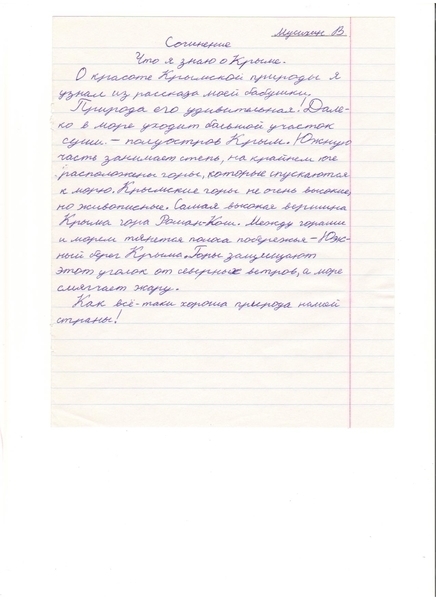 Мусихин В.
Сочинение
Что я знаю о Крыме.
О красоте Крымской природы я
узнал из рассказа моей бабушки.
Природа его удивительная! Дале-
ко в море уходит большой участок
суши - полуостров Крым. Южную
часть занимает степь, на крайнем юге
расположены горы, которые спускаются
к морю. Крымские горы не очень высокие,
но живописные. Самая высокая вершина
Крыма гора Роман-Кош. Между горами
и морем тянется полоса побережья - Юж-
ный берег Крыма. Горы защищают
этот уголок от северных ветров, а море
смягчает жару.
Как всё-таки хороша природа нашей
страны!